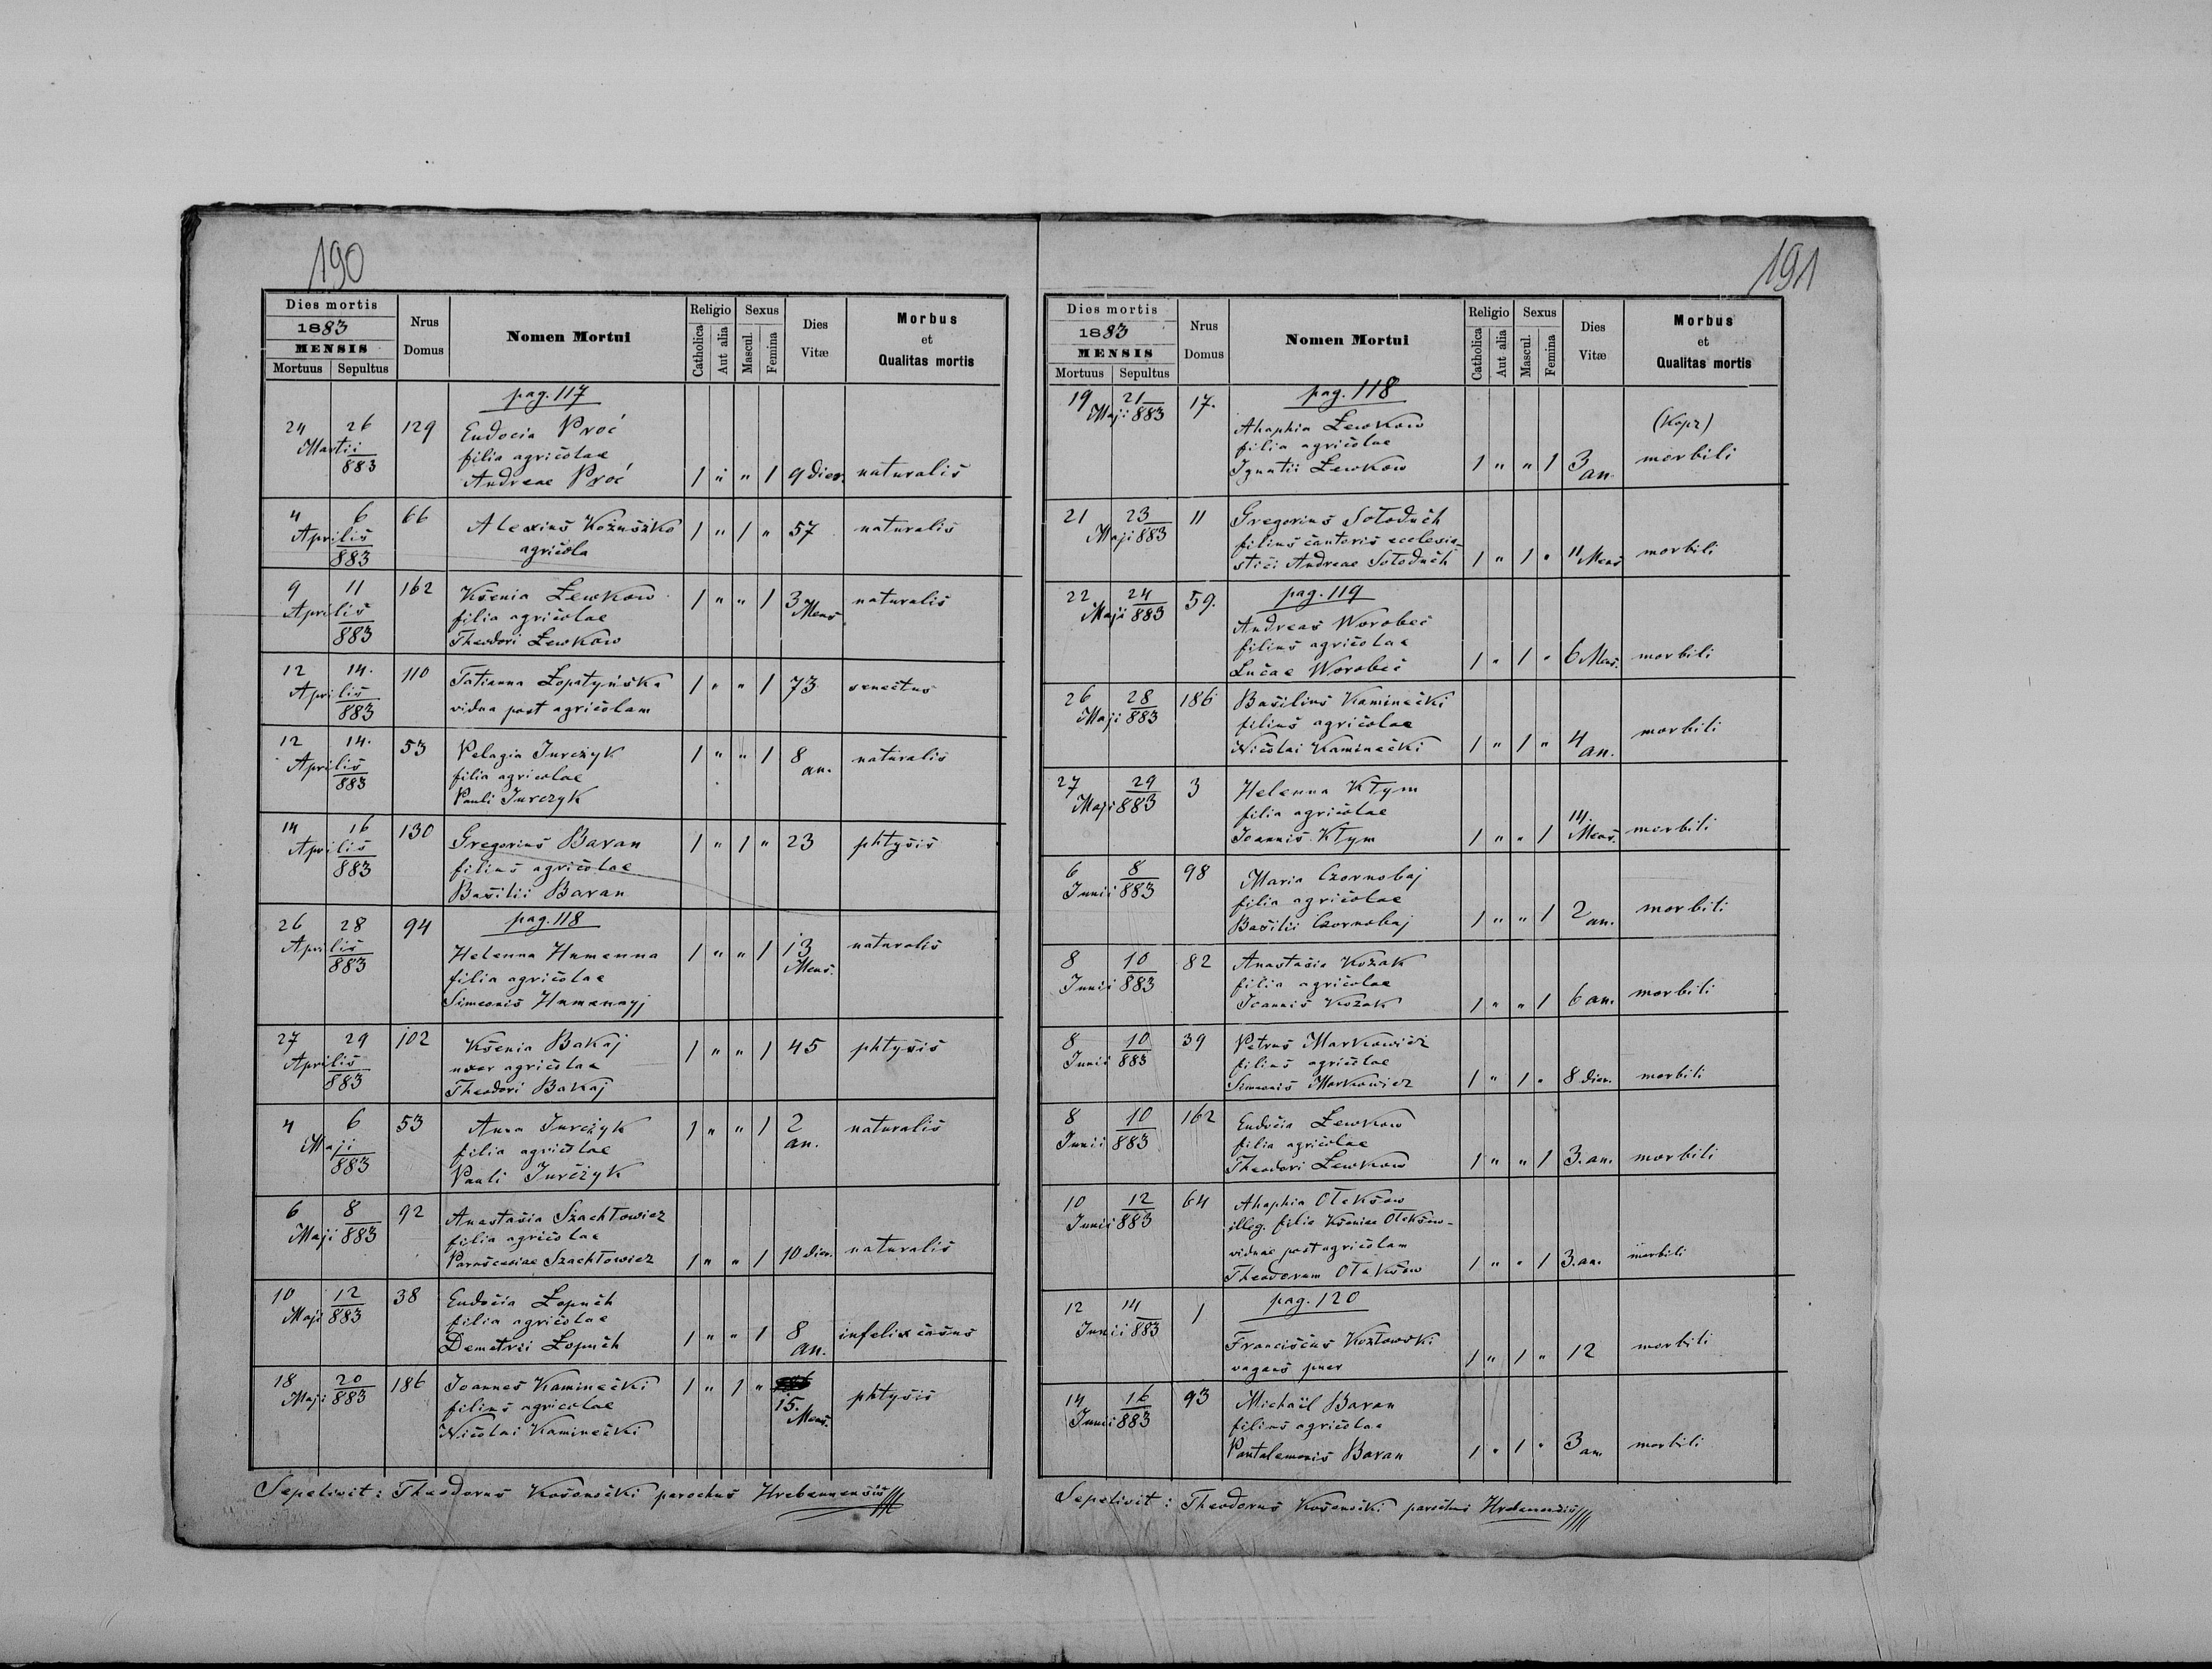 190
Dies mortis
1883
MENSIS
Mortuus Sepultus
Nrus Domus
Nomen Mortui
Religio
Catholica
Aut alia
Sexus
Mascul.
Femina
Dies Vitæ
Morbus et Qualitas mortis
pag. 117
24 26 129 Eudocia Proć
Martii 883 filia agricolae
Andreae Proć 1 " " 1 9 dier. naturalis
4 6 66 Alexius Kożuszko 1 " 1 " 57 naturalis
Aprilis 883 agricola
9 11 162 Ksenia Lewkow 1 " " 1 3 Mens. naturalis
Aprilis 883 filia agricolae
Theodori Lewkow
12 14. 110 Tatianna Łopatyńska 1 " " 1 73 senectus
Aprilis 883 vidua post agricolam
12 14. 53 Pelagia Jurczyk 1 " " 1 8 an. naturalis
Aprilis 883 filia agricolae
Pauli Jurczyk
14 16 130 Gregorius Baran 1 " 1 " 23 phtysis
Aprilis 883 filius agricolae
Basilii Baran
pag. 118
26 28 94 Helenna Humenna 1 " " 1 13 Mens. naturalis
Aprilis 883 filia agricolae
Simeonis Humennyj
27 29 102 Ksenia Bakaj 1 " " 1 45 phtysis
Aprilis 883 uxor agricolae
Theodori Bakaj
4 6 53 Anna Jurczyk 1 " " 1 2 an. naturalis
Maji 883 filia agricolae
Pauli Jurczyk
6 8 92 Anastasia Szachłowicz
Maji 883 filia agricolae
Parasceviae Szachłowicz 1 " " 1 10 dier. naturalis
10 12 38 Eudocia Łopuch
Maji 883 filia agricolae
Demetrii Łopuch 1 " " 1 8 an. infelix casus
18 20 186 Joannes Kaminecki 1 " 1 " 15. Mens. phtysis
Maji 883 filius agricolae
Nicolai Kaminecki
Sepelivit: Theodorus Kosonocki parochus Hrebennensis
191
Dies mortis
1883
MENSIS
Mortuus Sepultus
Nrus Domus
Nomen Mortui
Religio
Catholica
Aut alia
Sexus
Mascul.
Femina
Dies Vitæ
Morbus et Qualitas mortis
pag. 118
19 21 17.
Maji 883 Ahaphia Lewkow (Kopr)
filia agricolae
Ignatii Lewkow 1 " " 1 3 an. morbili
21 23 11 Gregorius Sołoduch
Maji 883 filius cantoris ecclesia-
stici Andreae Sołoduch 1 " 1 " 11 Mens morbili
pag. 119
22 24 59.
Maji 883 Andreas Worobec
filius agricolae
Lucae Worobec 1 " 1 " 6 Mens. morbili
26 28 186 Basilius Kaminecki
Maji 883 filius agricolae
Nicolai Kaminecki 1 " 1 " 4 an. morbili
27 29 3 Helenna Kłym
Maji 883 filia agricolae
Joannis Kłym 1 " " 1 14. Mens. morbili
6 8 98 Maria Czornobaj
Junii 883 filia agricolae
Basilii Czornobaj 1 " " 1 2 an. morbili
8 10 82 Anastasia Kozak
Junii 883 filia agricolae
Joannis Kozak 1 " " 1 6 an. morbili
8 10 39 Petrus Markowicz
Junii 883 filius agricolae
Simeonis Markowicz 1 " 1 " 8 dier. morbili
8 10 162 Eudocia Lewkow
Junii 883 filia agricolae
Theodori Lewkow 1 " " 1 3. an. morbili
10 12 64 Ahaphia Oleksow
Junii 883 illeg. filia Kseniae Oleksow-
viduae post agricolam
Theodorum Oleksow 1 " " 1 3. an. morbili
pag. 120
12 14 1
Junii 883 Franciscus Kozłowski
vagans puer 1 " 1 " 12 morbili
14 16 93 Michaël Baran
Junii 883 filius agricolae
Pantalemonis Baran 1 " 1 " 3 an. morbili
Sepelivit: Theodorus Kosonocki parochus Hrebennensis